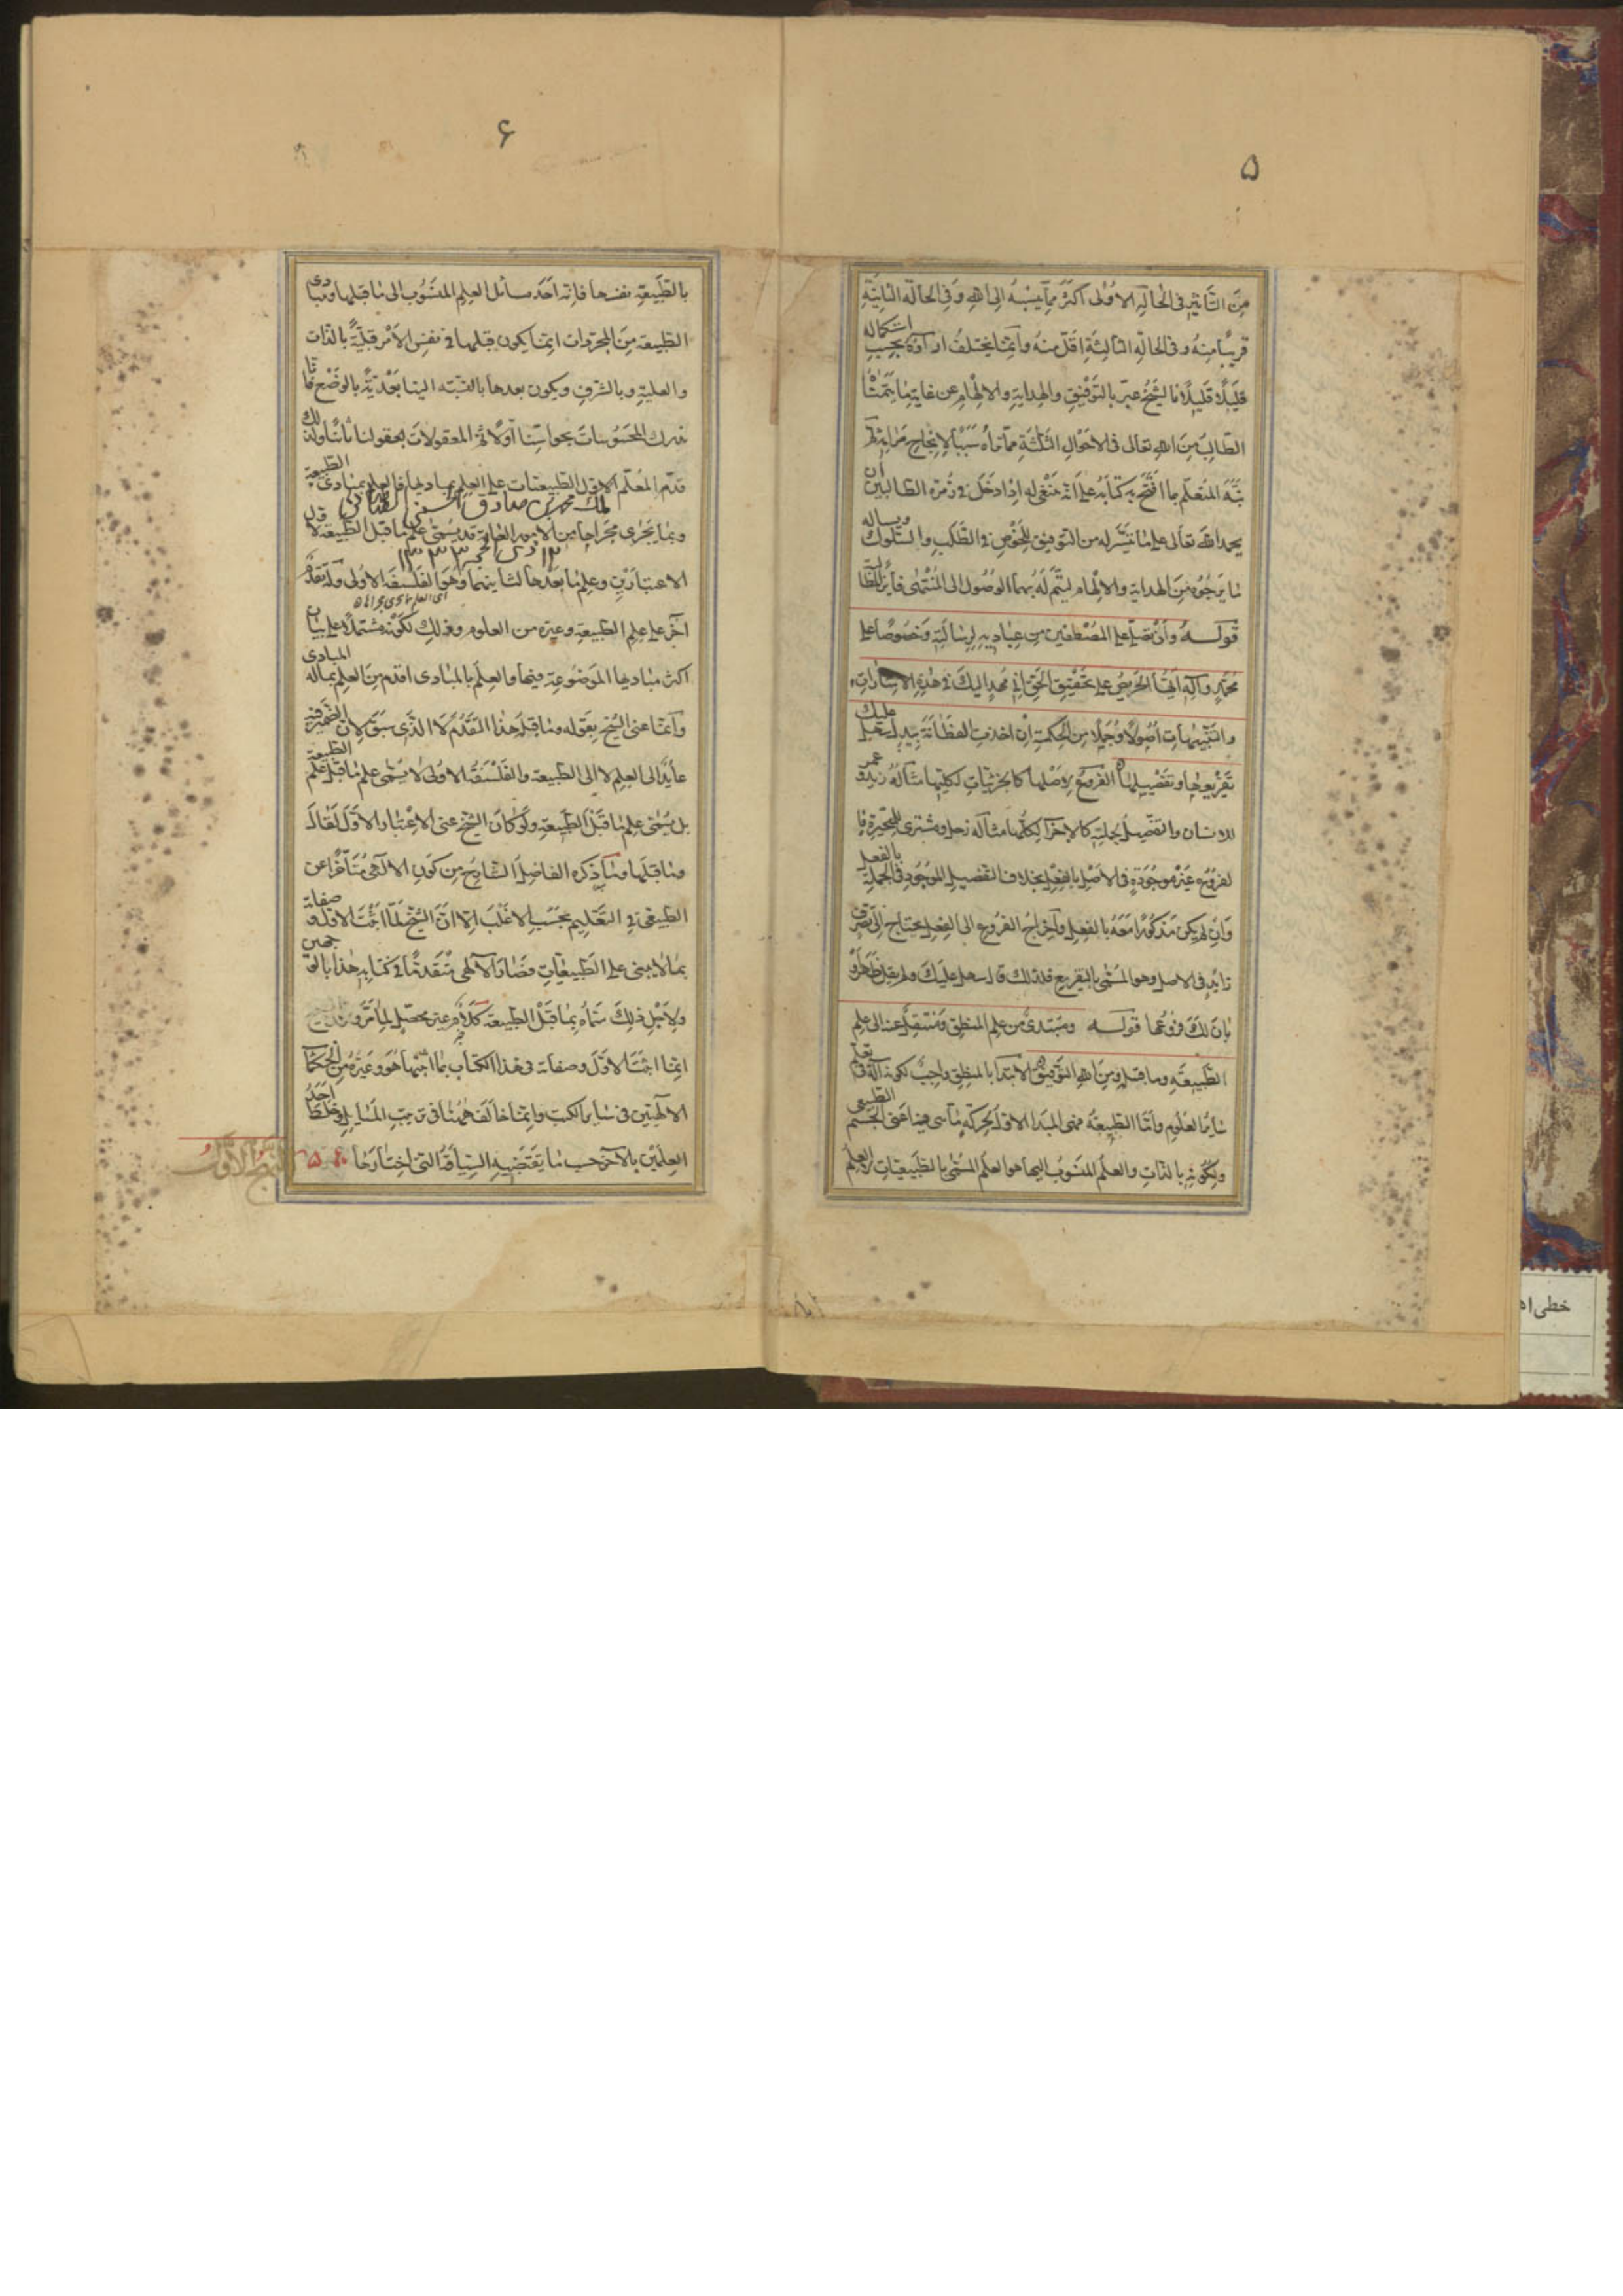 ۵
من التاثير فى الحالة الاولى اكثر مما ينسبه الى الله وفى الحالة الثانية
قريبا منه وفى الحالة الثالثة اقل منه وانما يختلف اراؤه بحسب استكماله
قليلا قليلا فالشيخ عبر بالتوفيق والهداية والالهام عن غاية ما يتمناه
الطالب من الله تعالى فى الاحوال الثلثة مما يراه سببا لانجاح مرامه ثم
نبه المتعلم بما افتتح به كتابه على انه ينبغى له اذا دخل فى زمرة الطالبين ان
يحمد الله تعالى على ما تيسر له من التوفيق للخوض فى الطلب والسلوك ويساله
ما يرجوه من الهداية والالهام ليتم له بهما الوصول الى المنتهى فائزا بالمطالب
قوله وان يصلى على المصطفين من عباده لرسالته وخصوصا على
محمد وآله ايها الحريص على تحقيق الحق انى مهد اليك فى هذه الاشارات
والتنبيهات اصولا وجملا من الحكمة ان اخذت الفطانة بيدك سهل عليك
تفريعها وتفصيلها الفروع لاصلها كالجزئيات لكليتها مثاله زيد وعمر
للانسان والتفصيل لجملته كالاجزا لكلها مثاله زحل ومشترى للمتحيرة فا
لفروع غير موجودة فى الاصل بالفعل بخلاف التفصيل الموجود فى الجملة بالفعل
وان لم يكن مذكورا معه بالفعل واخراج الفروع الى الفعل يحتاج الى تصرف
زايد فى الاصل وهو المسمى بالتفريع فلذلك قال سهل عليك ولم يقل ظهر او
بان لك فروعها قوله ومبتدئ من علم المنطق ومنتقل عنه الى علم
الطبيعة وما قبله ومن الله التوفيق الابتدا بالمنطق واجب لكونه آلة فى تعلم
ساير العلوم واما الطبيعة فهى المبدا الاول لحركة ما هى فيه اعنى الجسم الطبيعى
ولسكونه بالذات والعلم المنسوب اليها هو العلم المسمى بالطبيعيات لا العلم
۶
بالطبيعة نفسها فانه احد مسائل العلم المنسوب الى ما قبلها ومبادى
الطبيعة من المجردات انما يكون قبلها فى نفس الامر قبلية بالذات
والعلية وبالشرف ويكون بعدها بالنسبة الينا بعدية بالوضع فانا
ندرك المحسوسات بحواسنا اولا ثم المعقولات بعقولنا ثانيا ولذلك
قدم المعلم الاول الطبيعيات على العلم بمباديها فالعلم بمبادى الطبيعة
محمد بن صادق الحسينى الطباطبائى
وبما يجرى مجراها من الامور العامة قد يسمى علم ما قبل الطبيعة لاول
۱۳۳۳
الاعتبارين وعلم ما بعدها لثانيهما وهو الفلسفة الاولى وله تقدم
آخر على علم الطبيعة وغيره من العلوم وذلك لكونه مشتملا على بيان
اكثر مباديها الموضوعة فيها والعلم بالمبادى اقدم من العلم بما له المبادى
وانما عنى الشيخ بقوله وما قبله هذا التقدم لا الذى سبق لان الضمير فيه
عايد الى العلم لا الى الطبيعة والفلسفة الاولى لا يسمى علم ما قبل علم الطبيعة
بل يسمى علم ما قبل الطبيعة ولو كان الشيخ عنى الاعتبار الاول لقال
وما قبلها وما ذكره الفاضل الشارح من كون الالهى متاخرا عن
الطبيعى فى التعليم بحسب الاغلب الا ان الشيخ لما اثبت الاول وصفاته
بما لا يبنى على الطبيعيات فصار الالهى متقدما فى كتابه هذا بالوجهين
ولاجل ذلك سماه بما قبل الطبيعة كلام غير محصل لما مر
انما اثبت الاول وصفاته فى هذا الكتاب بما اثبتها هو وغيره من الحكما
الالهيين فى ساير الكتب وانما خالف ههنا فى ترتيب المسايل وخلط احد
العلمين بالآخر حسب ما يقتضيه السياقة التى اختارها
النهج الاول
خطى